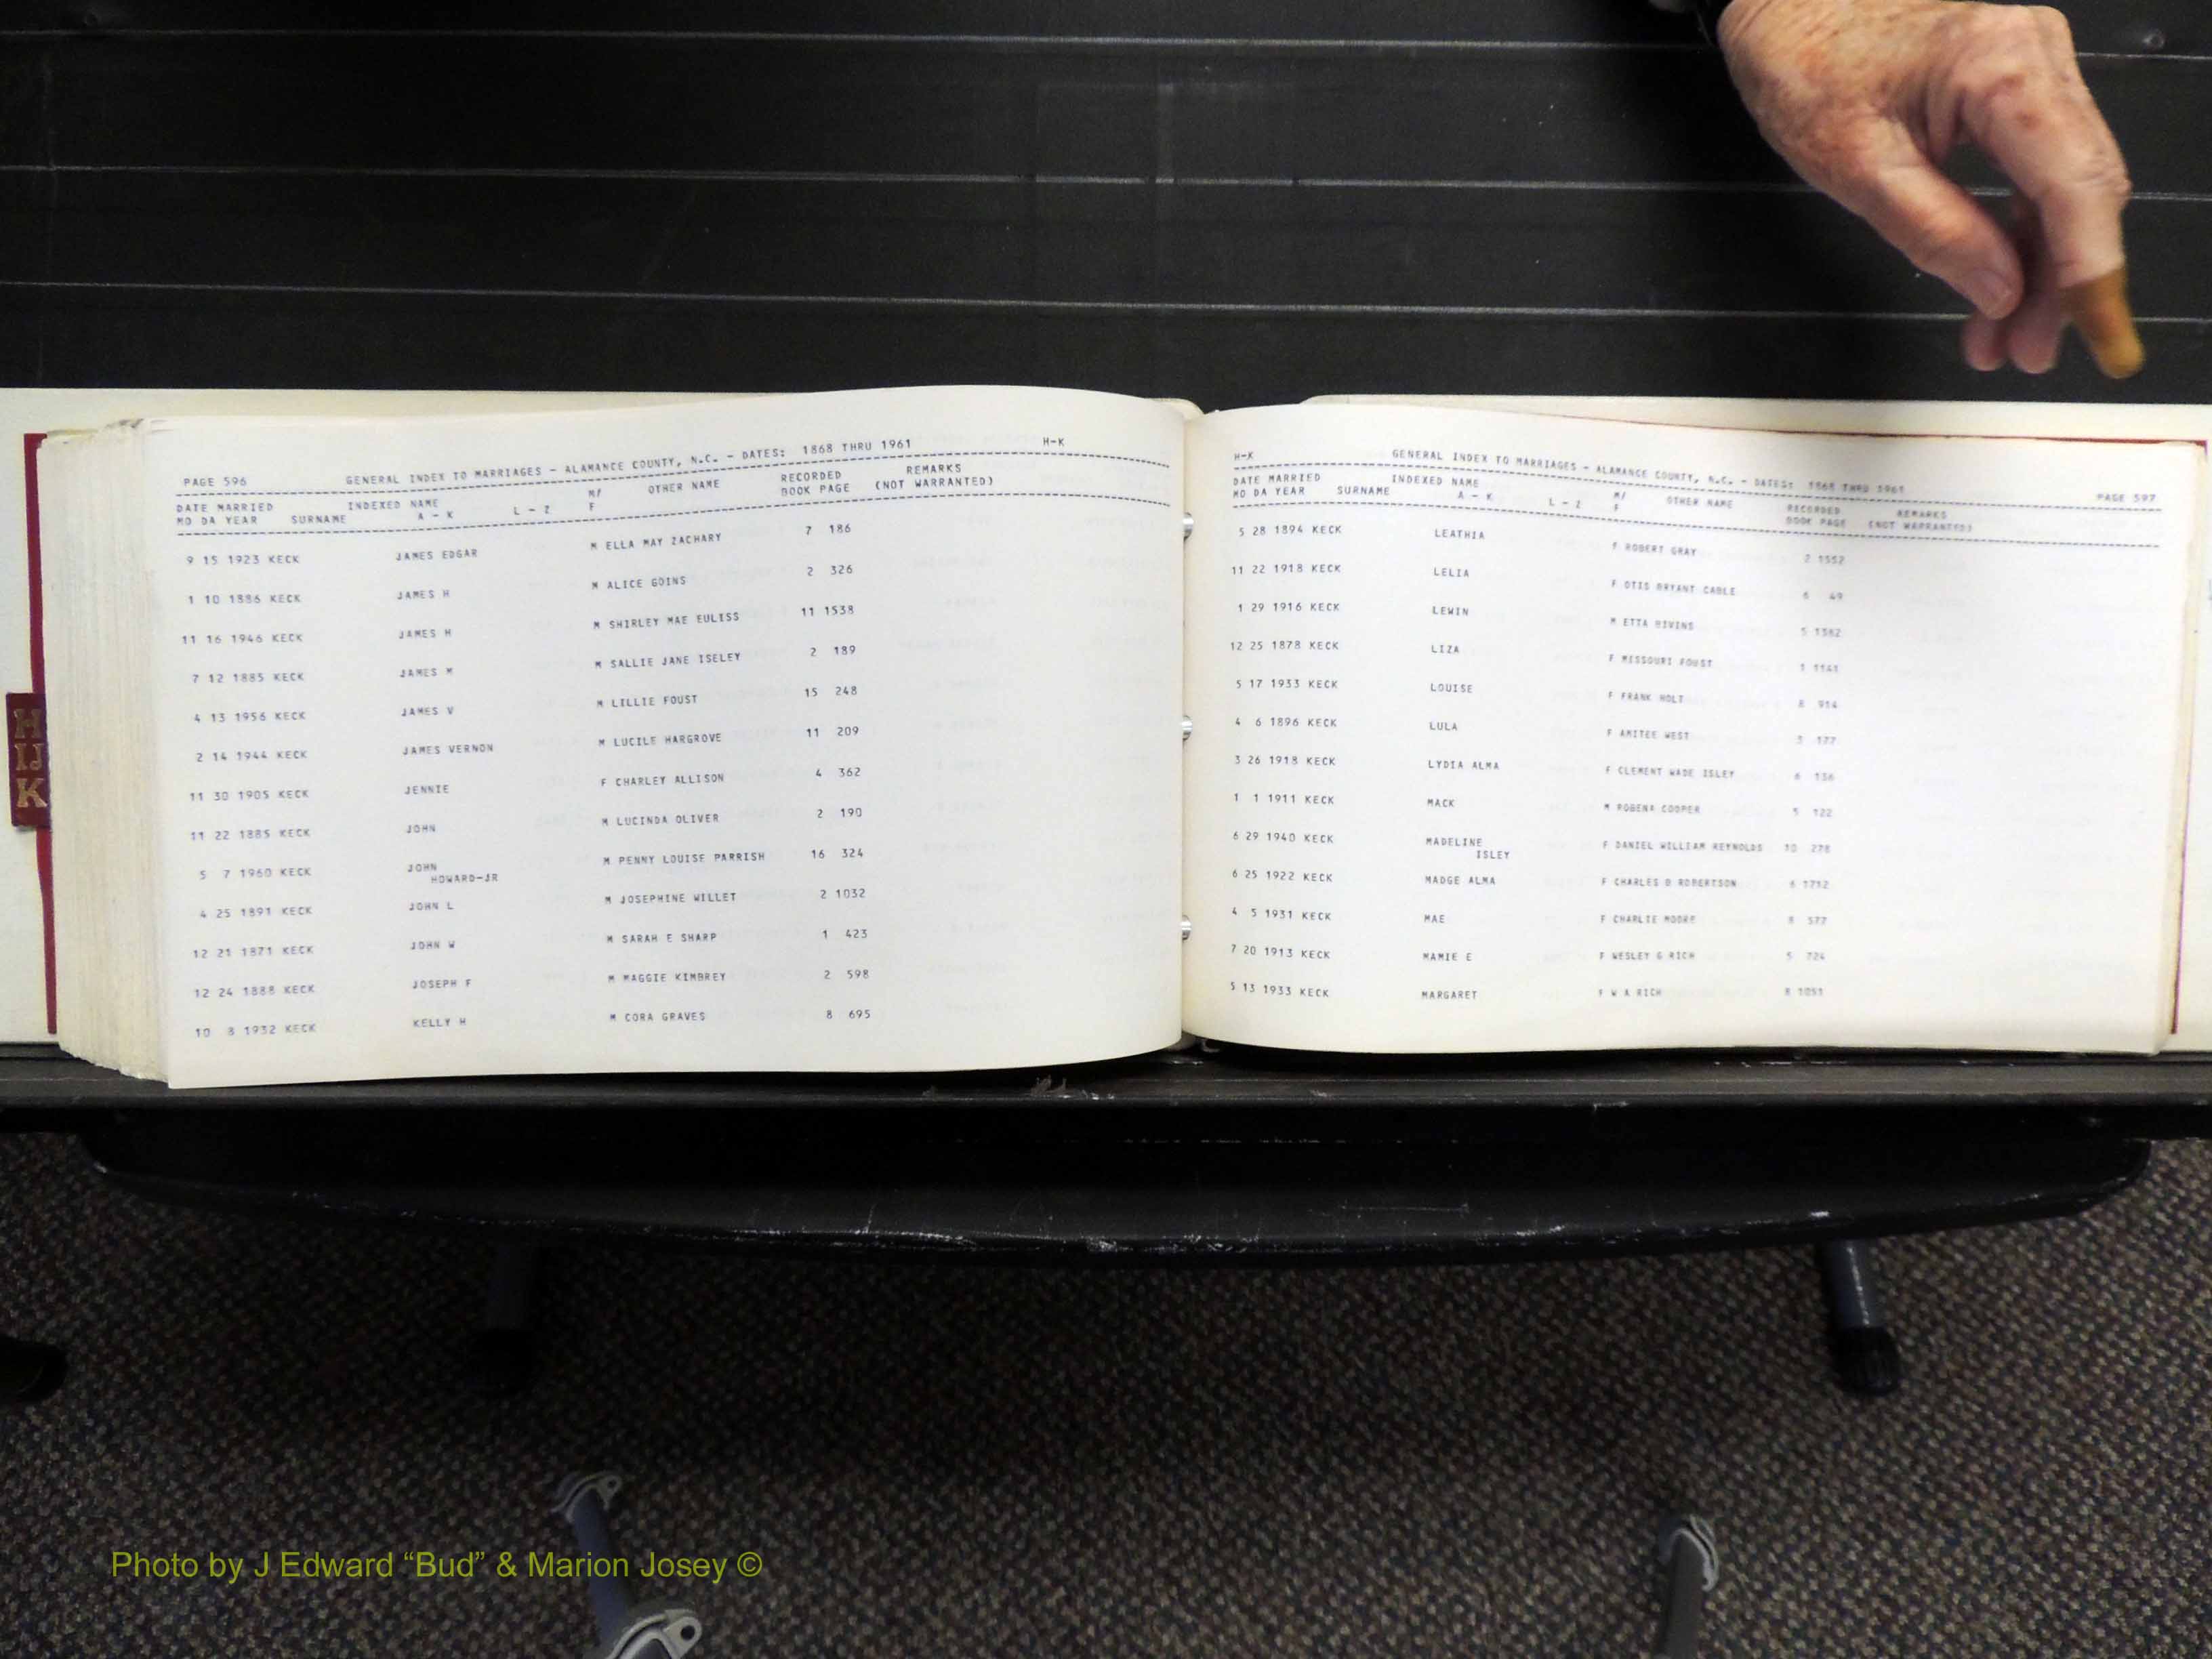 PAGE 596 GENERAL INDEX TO MARRIAGES - ALAMANCE COUNTY, N.C. - DATES: 1868 THRU 1961 H-K
DATE MARRIED INDEXED NAME M/ OTHER NAME RECORDED REMARKS
MO DA YEAR SURNAME A - K L - Z F BOOK PAGE (NOT WARRANTED)
9 15 1923 KECK JAMES EDGAR M ELLA MAY ZACHARY 7 186
1 10 1886 KECK JAMES H M ALICE GOINS 2 326
11 16 1946 KECK JAMES H M SHIRLEY MAE EULISS 11 1538
7 12 1885 KECK JAMES M M SALLIE JANE ISELEY 2 189
4 13 1956 KECK JAMES V M LILLIE FOUST 15 248
2 14 1944 KECK JAMES VERNON M LUCILE HARGROVE 11 209
11 30 1905 KECK JENNIE F CHARLEY ALLISON 4 362
11 22 1885 KECK JOHN M LUCINDA OLIVER 2 190
5 7 1960 KECK JOHN M PENNY LOUISE PARRISH 16 324
HOWARD-JR
4 25 1891 KECK JOHN L M JOSEPHINE WILLET 2 1032
12 21 1871 KECK JOHN W M SARAH E SHARP 1 423
12 24 1888 KECK JOSEPH F M MAGGIE KIMBREY 2 598
10 8 1932 KECK KELLY H M CORA GRAVES 8 695
H-K GENERAL INDEX TO MARRIAGES - ALAMANCE COUNTY, N.C. - DATES: 1868 THRU 1961 PAGE 597
DATE MARRIED INDEXED NAME M/ OTHER NAME RECORDED REMARKS
MO DA YEAR SURNAME A - K L - Z F BOOK PAGE (NOT WARRANTED)
5 28 1894 KECK LEATHIA F ROBERT GRAY 2 1552
11 22 1918 KECK LELIA F OTIS BRYANT CABLE 6 49
1 29 1916 KECK LEWIN M ETTA BIVINS 5 1362
12 25 1878 KECK LIZA F MISSOURI FOUST 1 1141
5 17 1933 KECK LOUISE F FRANK HOLT 8 914
4 6 1896 KECK LULA F AMITEE WEST 3 177
3 26 1918 KECK LYDIA ALMA F CLEMENT WADE ISLEY 6 136
1 1 1911 KECK MACK M ROBENA COOPER 5 122
6 29 1940 KECK MADELINE F DANIEL WILLIAM REYNOLDS 10 278
ISLEY
6 25 1922 KECK MADGE ALMA F CHARLES D ROBERTSON 6 1712
4 5 1931 KECK MAE F CHARLIE MOORE 8 577
7 20 1913 KECK MAMIE E F WESLEY G RICH 5 724
5 13 1933 KECK MARGARET F W A RICH 8 1051
H
IJ
K
Photo by J Edward “Bud” & Marion Josey ©